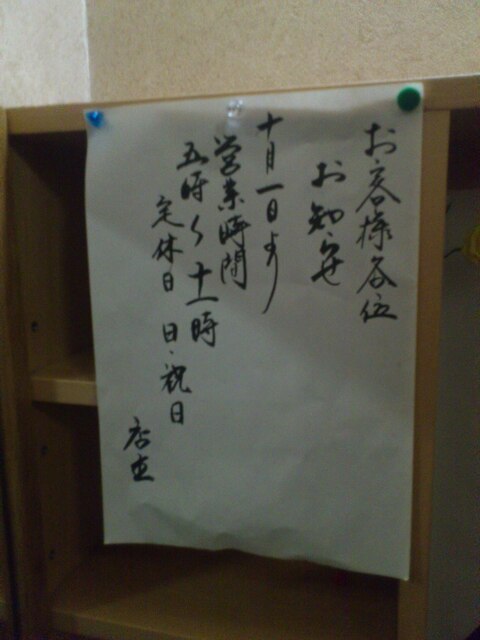 お客様各位
お知らせ
十月一日より
営業時間
五時〜十一時
定休日 日・祝日
店主